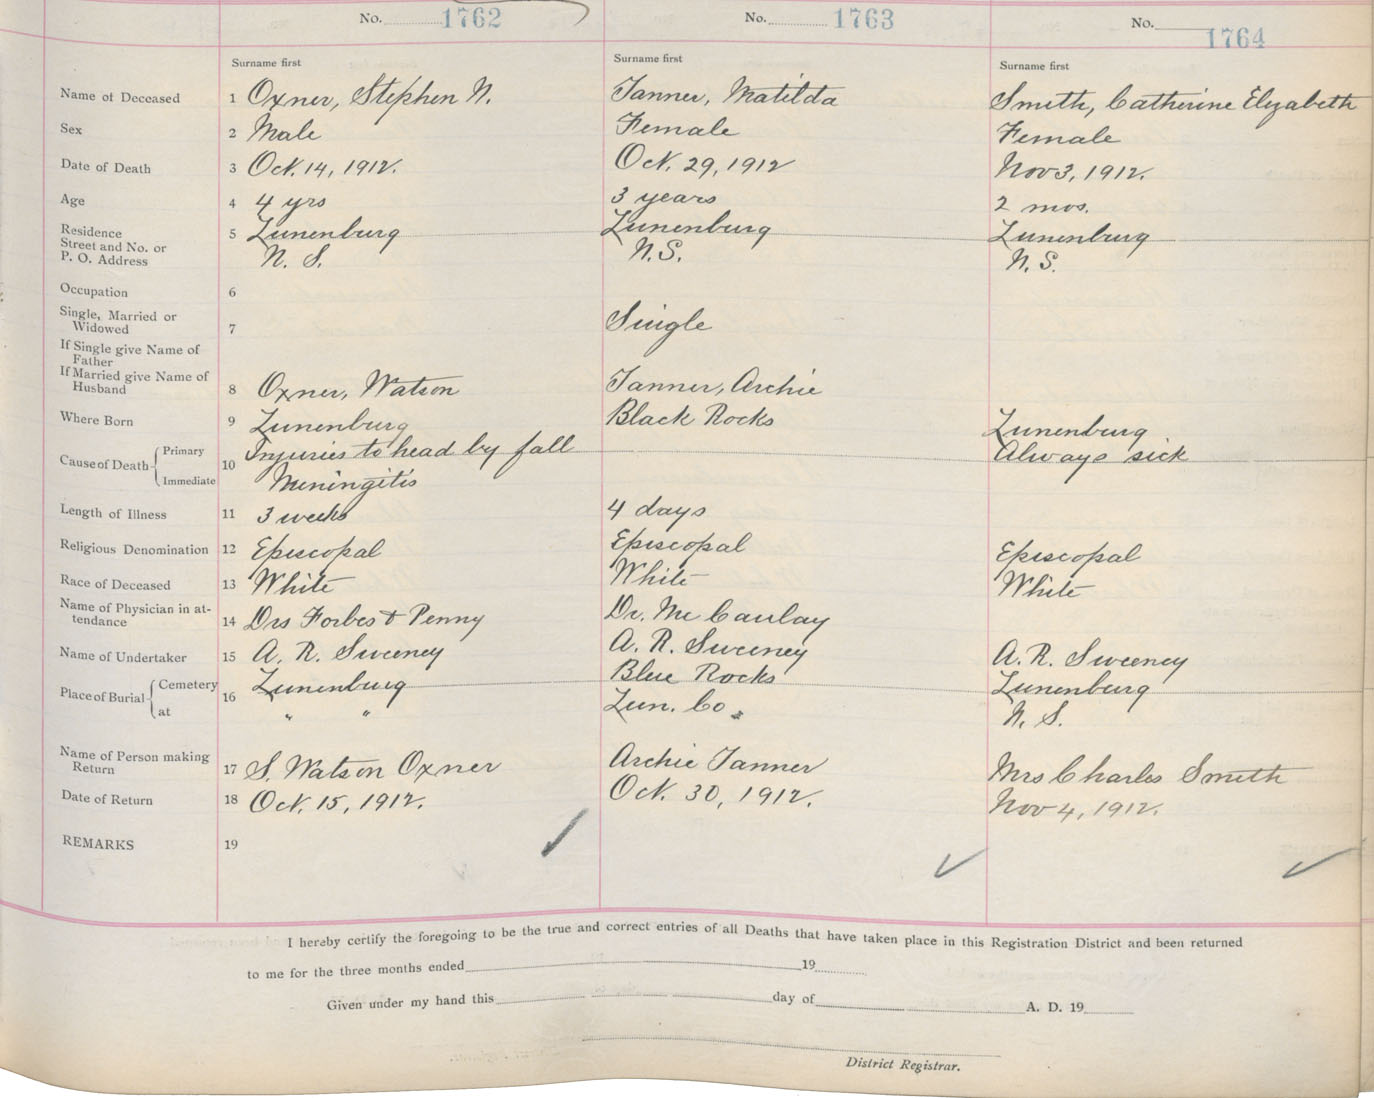 No. 1762 No. 1763 No. 1764
Surname first Surname first Surname first
Name of Deceased 1 Oxner, Stephen N. Tanner, Matilda Smith, Catherine Elizabeth
Sex 2 Male Female Female
Date of Death 3 Oct. 14, 1912. Oct. 29, 1912 Nov 3, 1912.
Age 4 4 yrs 3 years 2 mos.
Residence 5 Lunenburg Lunenburg Lunenburg
Street and No. or
P. O. Address N. S. N.S. N.S.
Occupation 6
Single, Married or
Widowed 7 Single
If Single give Name of
Father
If Married give Name of
Husband 8 Oxner, Watson Tanner, Archie
Where Born 9 Lunenburg Black Rocks Lunenburg
Cause of Death Primary 10 Injuries to head by fall Always sick
Immediate Miningitis
Length of Illness 11 3 weeks 4 days
Religious Denomination 12 Episcopal Episcopal Episcopal
Race of Deceased 13 White White White
Name of Physician in at-
tendance 14 Drs Forbes & Penny Dr. Mc Caulay
Name of Undertaker 15 A. R. Sweeney A. R. Sweeney A. R. Sweeney
Place of Burial Cemetery 16 Lunenburg Blue Rocks Lunenburg
at " " Lun. Co. N. S.
Name of Person making
Return 17 S. Watson Oxner Archie Tanner Mrs Charles Smith
Date of Return 18 Oct. 15, 1912. Oct. 30, 1912. Nov 4, 1912.
REMARKS 19
I hereby certify the foregoing to be the true and correct entries of all Deaths that have taken place in this Registration District and been returned
to me for the three months ended 19
Given under my hand this day of A. D. 19
District Registrar.